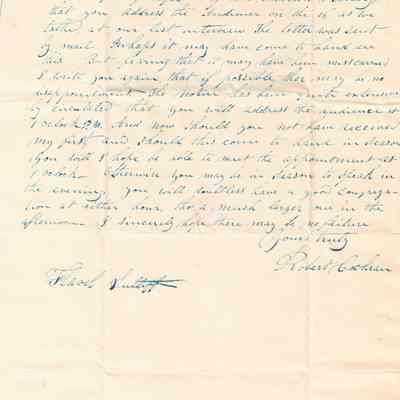 that you address the audience on the 16th at the
latter, at our last interview. The letter was sent
by mail. Perhaps it may have come to hand ere
this. But fearing that it may have been miscarried
I write you again that if possible there may be no
disappointment. The notice has been quite extensively
circulated that you will address the audience at
1 oclock P.M. And now should you not have received
my first and should this come to hand in season
you will I hope be able to meet the appointment at
1 oclock. Otherwise you may be in season to speak in
the evening. you will doubtless have a good congrega-
tion at either hour, tho' a much larger one in the
afternoon. I sincerely hope there may be no failure
Yours truly
Robert Cochran
Flavel Sutliff